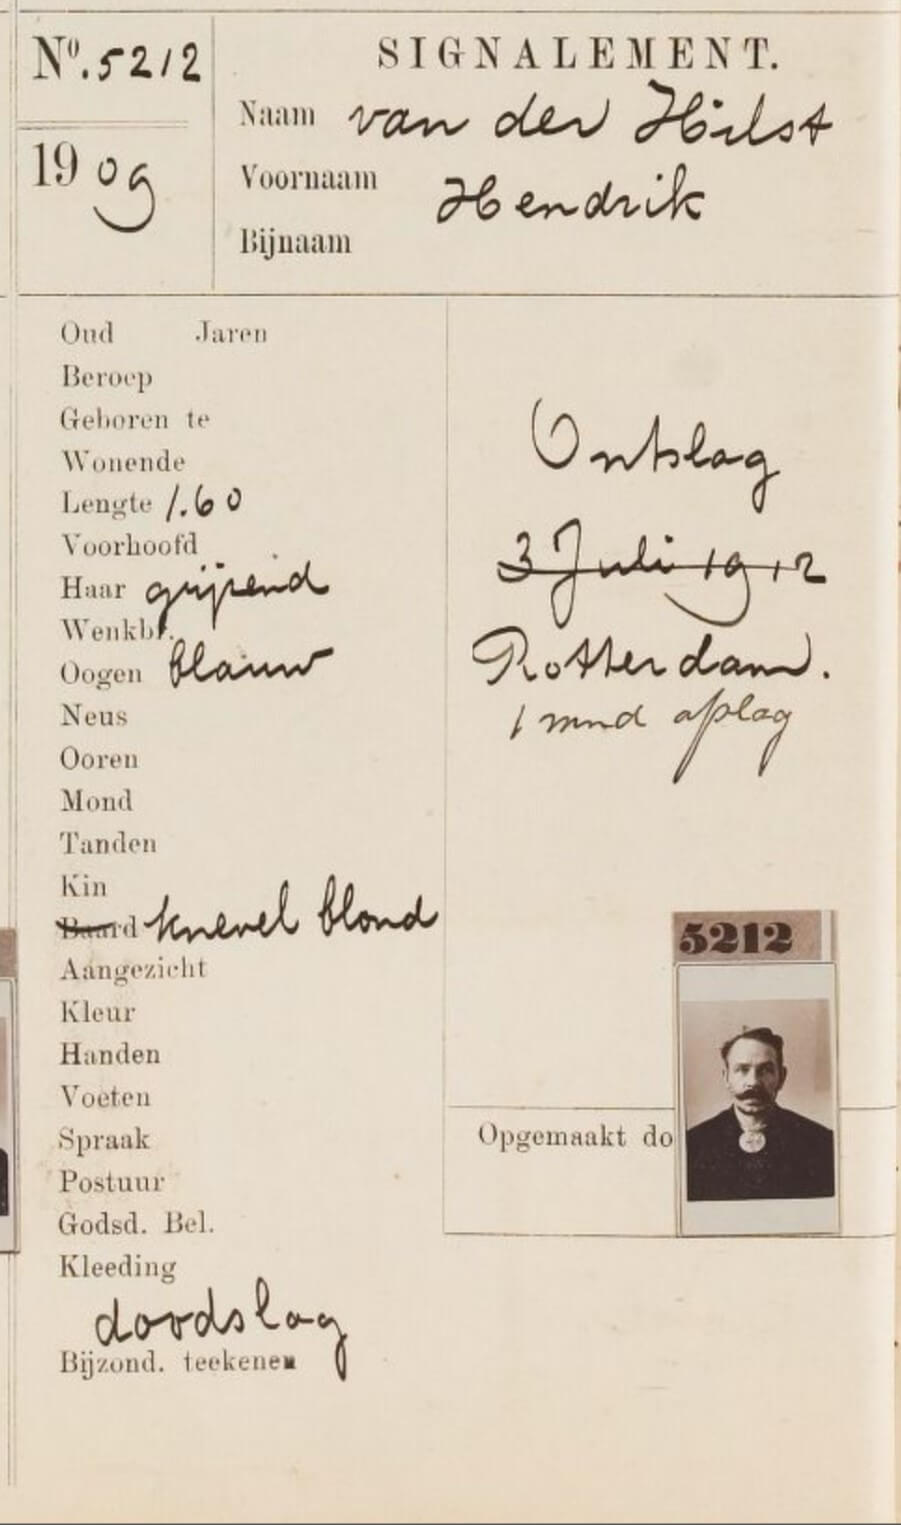 Nº. 5212
1909
SIGNALEMENT.
Naam van der Hilst
Voornaam Hendrik
Bijnaam
Oud Jaren
Beroep
Geboren te
Wonende
Lengte 1.60
Voorhoofd
Haar grijzend
Wenkbr.
Oogen blauw
Neus
Ooren
Mond
Tanden
Kin
Baard knevel blond
Aangezicht
Kleur
Handen
Voeten
Spraak
Postuur
Godsd. Bel.
Kleeding
doodslag
Bijzond. teekenen
Ontslag
3 Juli 1912
Rotterdam.
1 mnd afslag
5212
Opgemaakt do